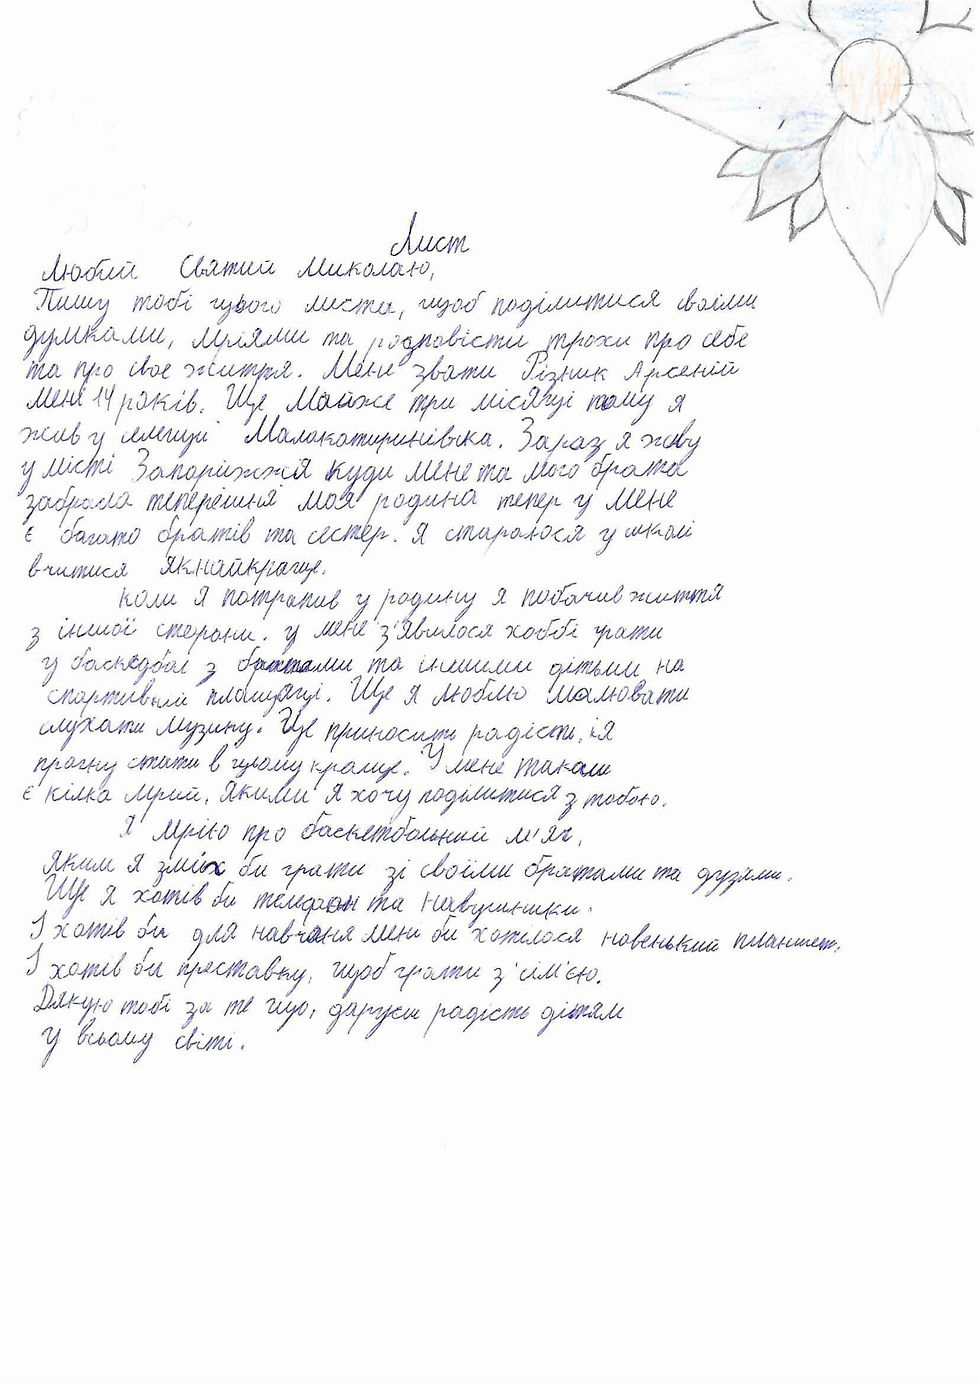 Лист
Любий Святий Миколаю,
Пишу тобі цього листа, щоб поділитися своїми
думками, мріями та розповісти трохи про себе
та про своє життя. Мене звати Різник Арсеній
мені 14 років. Ще майже три місяці тому я
жив у селещі Малокатеринівка. Зараз я живу
у місті Запоріжжя куди мене та мого брата
забрала теперішня моя родина тепер у мене
є багато братів та сестер. Я стараюся у школі
вчитися якнайкраще.
Коли я потрапив у родину я побачив життя
з іншої сторони. у мене з'явилося хоббі грати
у баскедбол з братами та іншими дітьми на
спортивній площядці. Ще я люблю малювати
слухати музику. Це приносить радість, і я
прагну стати в цьому краще. У мене також
є кілка мрій, якими я хочу поділитися з тобою.
Я мрію про баскетбольний м'яч,
яким я зміг би грати зі своїми братами та друзями.
Ще я хотів би телефон та навушники.
І хотів би для навчаня мені би хотілося новенький планшет.
І хотів би преставку, щоб грати з сім'єю.
Дякую тобі за те що, даруєш радість дітям
у всьому світі.